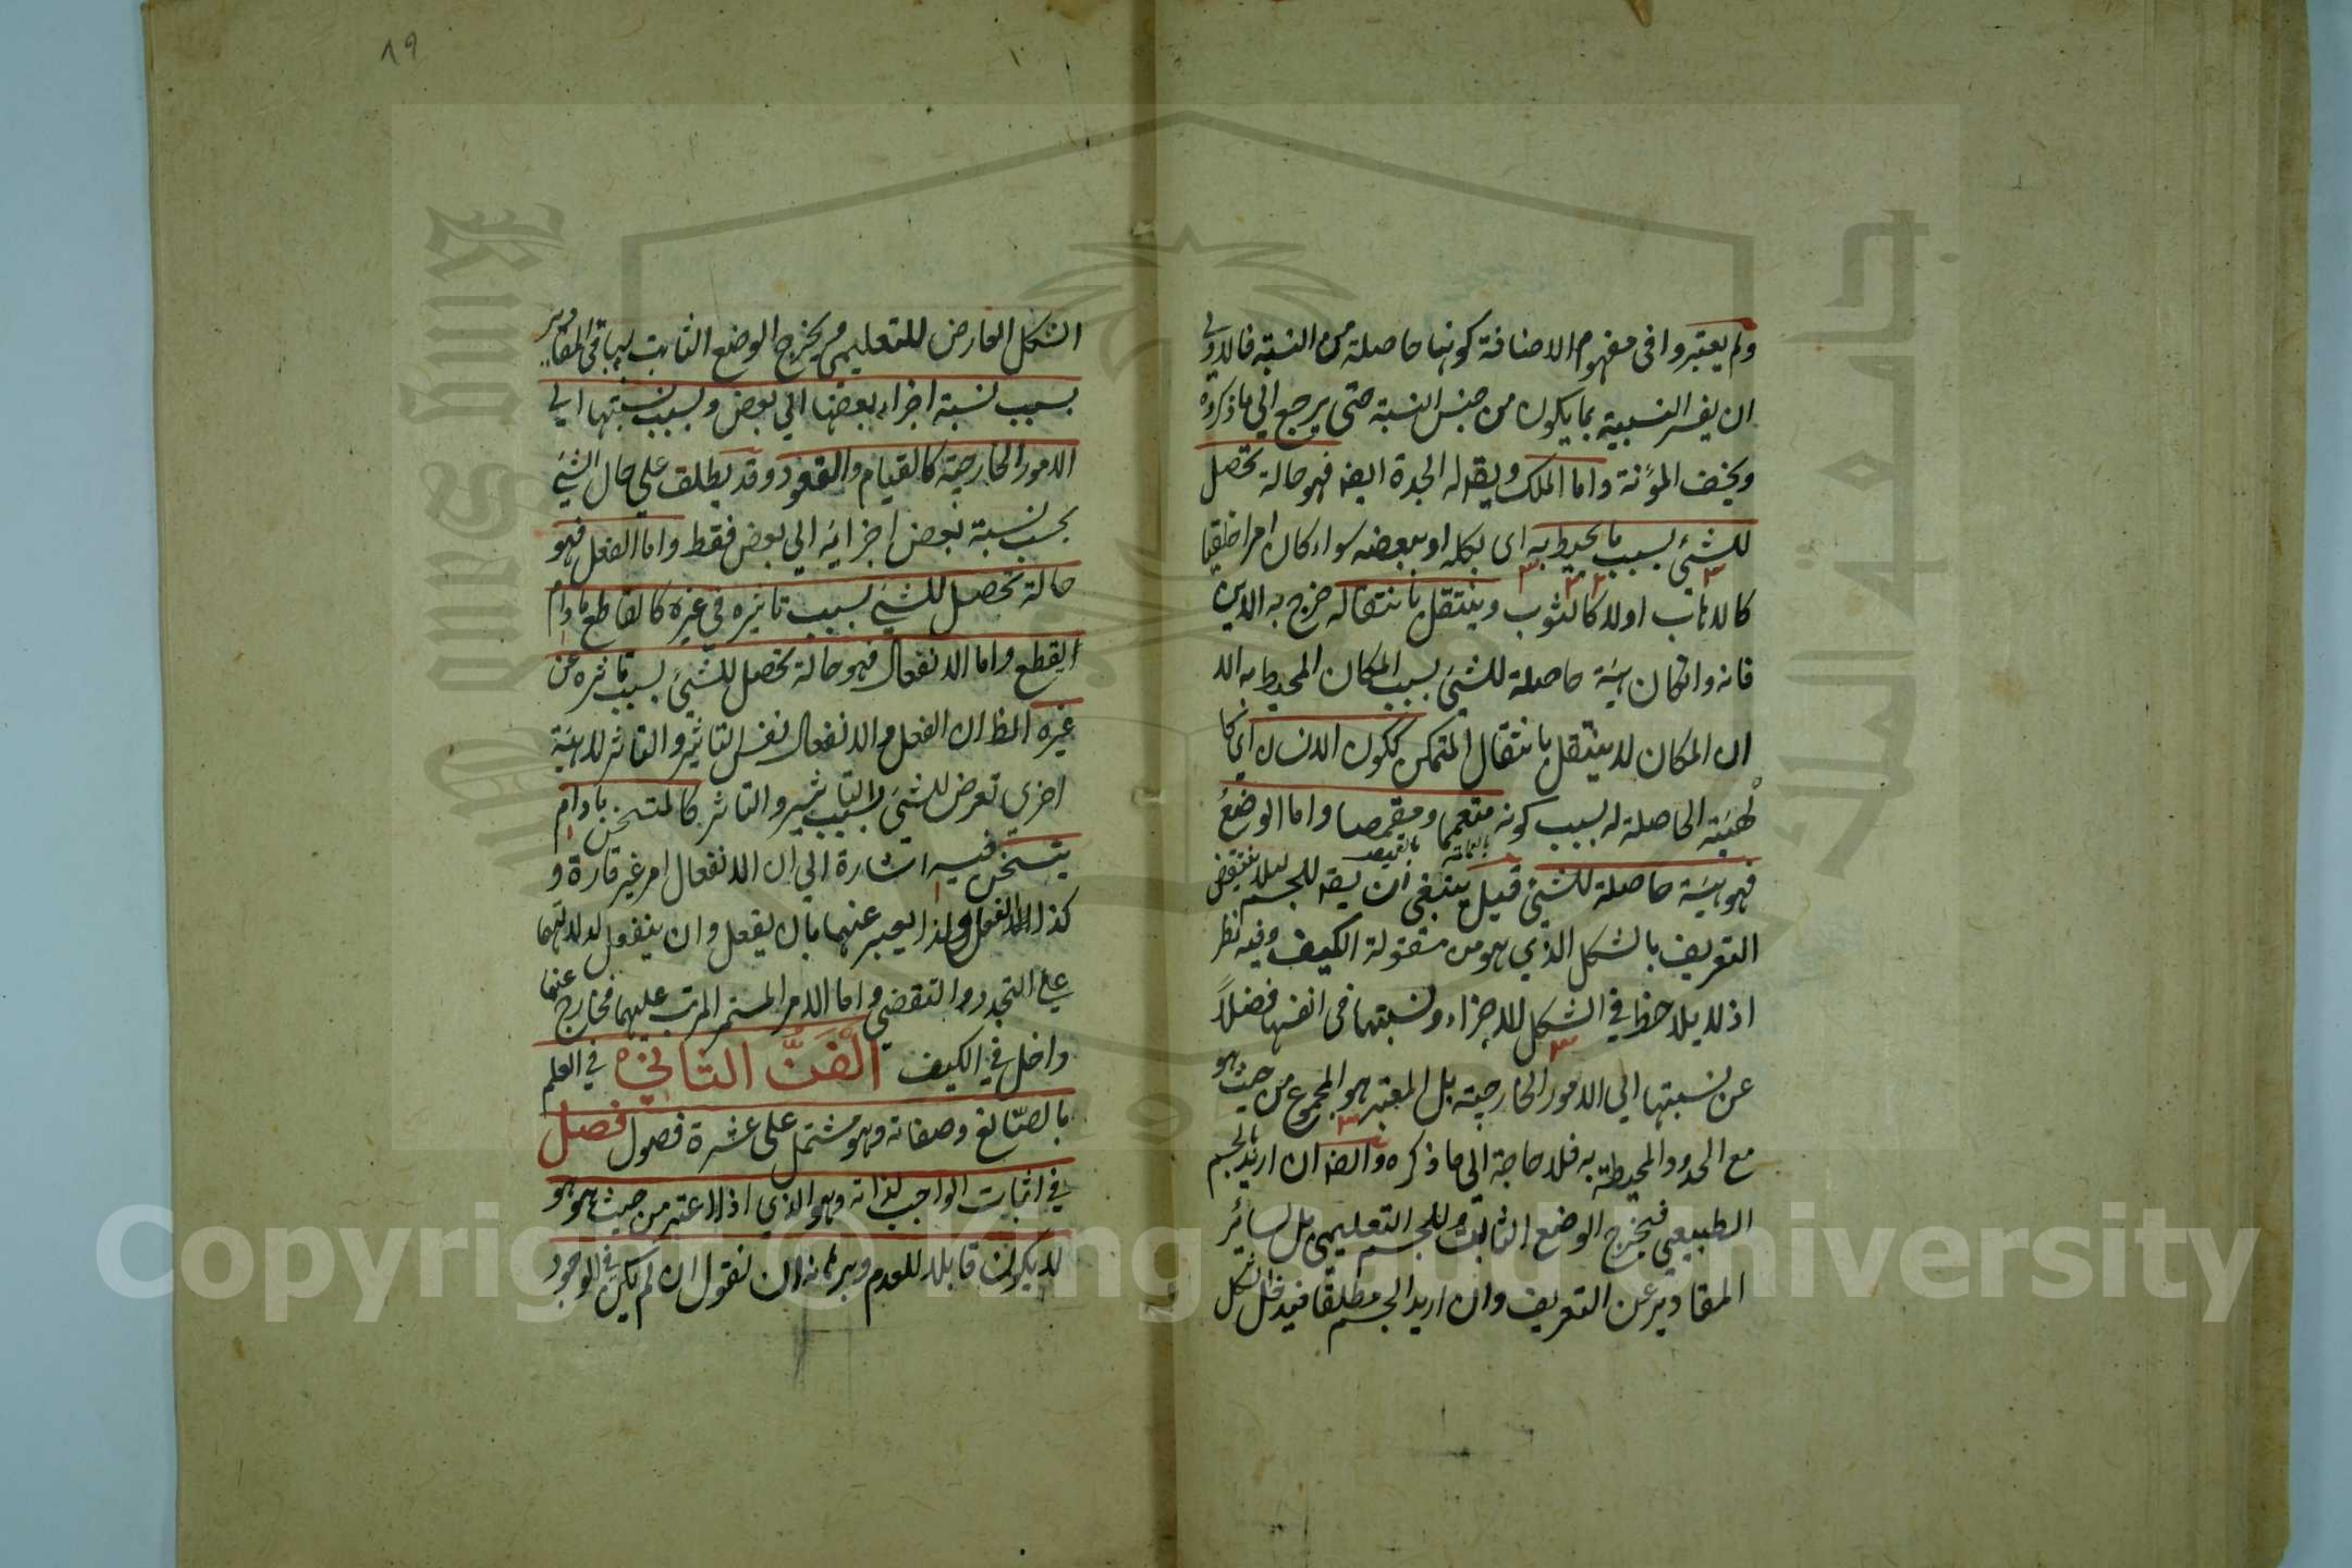 ولم يعتبروا فى مفهوم الاضافة كونها حاصلة من النسبة فالاولى
ان يفسر النسبية بما يكون من جنس النسبة حتى يرجع الى ما ذكروه
ويخف المؤنة واما الملك ويقه له الجدة ايضه فهو حالة تحصل
للشئ بسبب ما يحيط به اى بكله او ببعضه سواء كان امرا خلقيا
كالاهاب اولا كالثوب وينتقل بانتقاله خرج به الاين
فانه وانكان هيئة حاصلة للشئ بسبب المكان المحيط به الا
ان المكان لا ينتقل بانتقال المتمكن ككون الانسان اى كا
لهيئة الحاصلة له بسبب كونه متعمما ومقمصا واما الوضع
بالعمامة بالقميص
فهو هيئة حاصلة للشئ قيل ينبغى ان يقه للجسم ليلا ينتقض
التعريف بالشكل الذي هو من مقولة الكيف وفيه نظر
اذ لا يلاحظ في الشكل للاجزاء ونسبتها فى انفسها فضلاً
عن نسبتها الى الامور الخارجية بل المعتبر هو المجموع من حيث هو
مع الحدود المحيطة به فلا حاجة الى ما ذكره وايضه ان اريد بالجسم
الطبيعي فيخرج الوضع الثابت للجسم التعليمي بل لسائر
المقادير عن التعريف وان اريد الجسم مطلقا فيدخل الشكل
٨٩
الشكل العارض للتعليمي ويخرج الوضع الثابت لباقى المقادير
بسبب نسبة اجزاء بعضها الي بعض وبسبب نسبتها الي
الامور الخارجية كالقيام والقعود وقد يطلق علي حال الشئ
بحسب نسبة بعض اجزائه الي بعض فقط واما الفعل فهو
حالة تحصل للشئ بسبب تاثيره في غيره كالقاطع ما دام
القطع واما الانفعال فهو حالة تحصل للشئ بسبب تاثره عن
غيره المظ ان الفعل والانفعال نفس التاثير والتاثر لا هيئة
اخري تعرض للشئ بسبب التاثير والتاثر كالمتسخن ما دام
يتسخن فيه اشارة الي ان الانفعال امر غير قارة و
كذا الفعل ولذا يعبر عنهما بان يفعل وان ينفعل لدلالتهما
علي التجدد والتقضي واما الامر المستمر المرتب عليهما فخارج عنهما
داخل في الكيف الفَنُّ الثاني في العلم
بالصّانع وصفاته وهو مشتمل على عشرة فصول فصل
في اثبات الواجب لذاته وهو الذي اذا اعتبر من حيث هو هو
لا يكون قابلا للعدم وبرهانه ان نقول ان لم يكن في الوجود
Copyright © King Saud University
King Saud University
جامعة الملك سعود